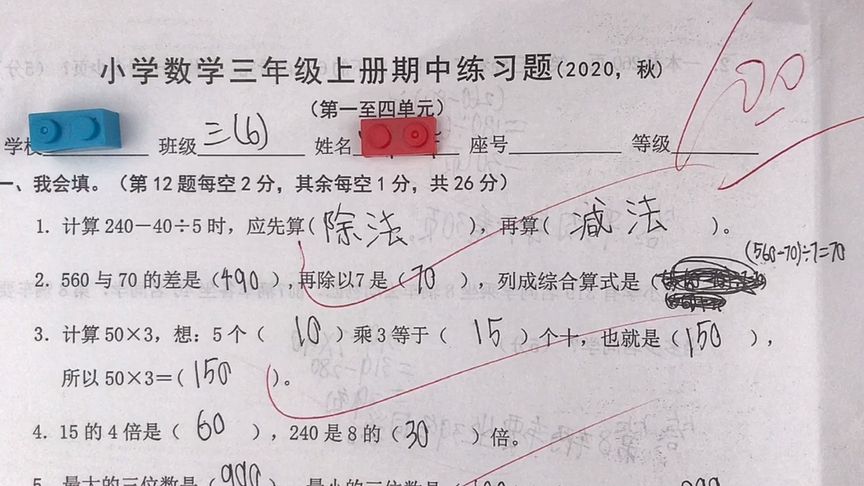 小学数学三年级上册期中练习题(2020，秋)
(第一至四单元)
学校 班级三(6) 姓名 座号 等级 100
一、我会填。(第12题每空2分，其余每空1分，共26分)
1. 计算240－40÷5时，应先算(除法)，再算(减法)。
(560-70)÷7=70
2. 560与70的差是(490)，再除以7是(70)，列成综合算式是(
3. 计算50×3，想：5个(10)乘3等于(15)个十，也就是(150)，
所以50×3＝(150)。
4. 15的4倍是(60)，240是8的(30)倍。
5. 最大的三位数是(999)，最小的三位数是(100